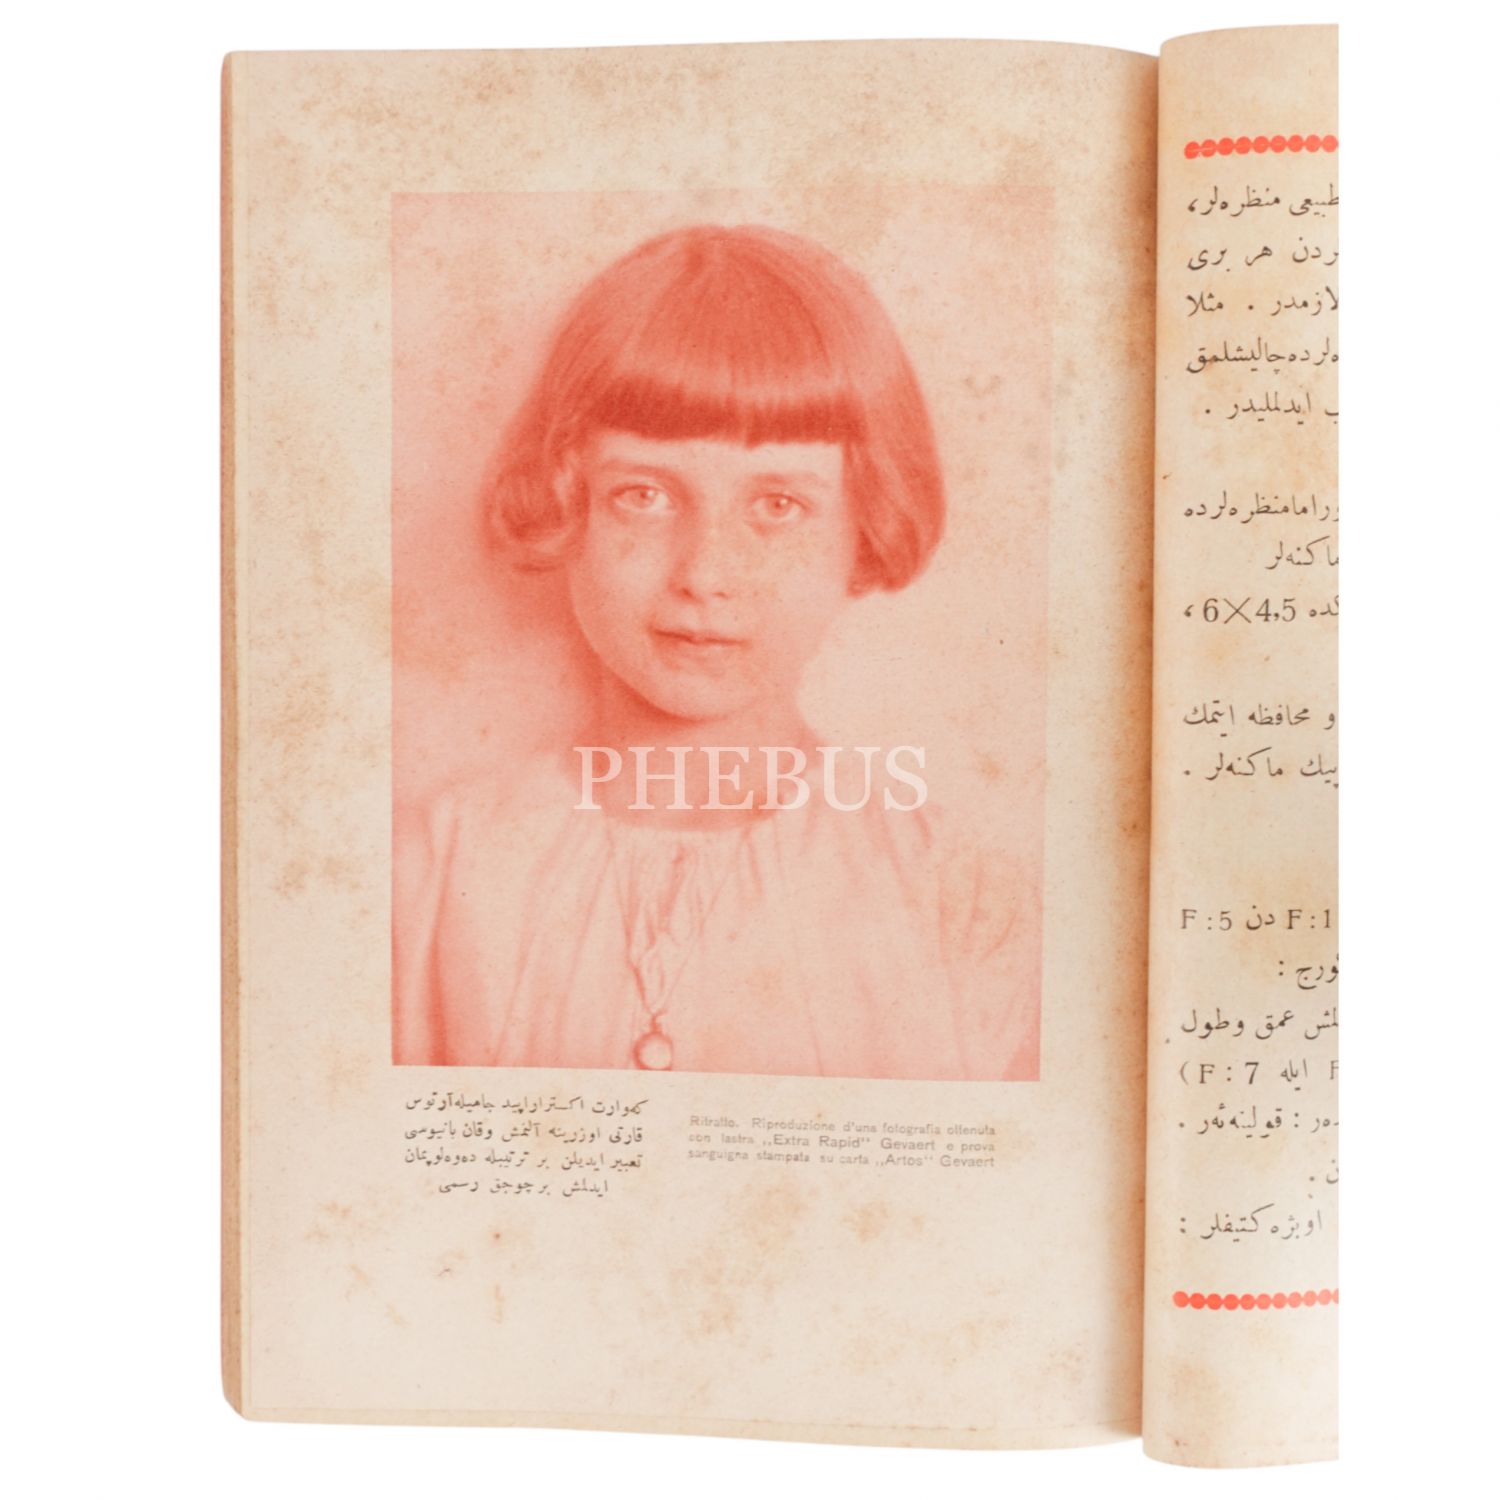 PHEBUS
كه‌وارت اكسترا راپید جامیله آرتوس
قارتی اوزرینه آلنمش وقان بانیوسی
تعبیر ایدیلن بر ترتیبله ده‌وه‌لوپمان
ایدلمش بر چوجق رسمی
Ritratto. Riproduzione d'una fotografia ottenuta
con lastra ,,Extra Rapid" Gevaert e prova
sanguigna stampata su carta ,,Artos" Gevaert
طبیعی منظره‌لر،
ردن هر بری
لازمدر . مثلا
ه‌لرده چالیشلمق
ایدلملیدر .
ورامامنظره‌لرده
ماكنه‌لر
6×4,5 ،
و محافظه ایتمك
پیك ماكنه‌لر .
F:1 دن F:5
ورج :
لمش عمق وطول
F ایله F:7)
ده‌ر : قولینه‌ئه‌ر .
ن .
اوبژه‌كتیفلر :